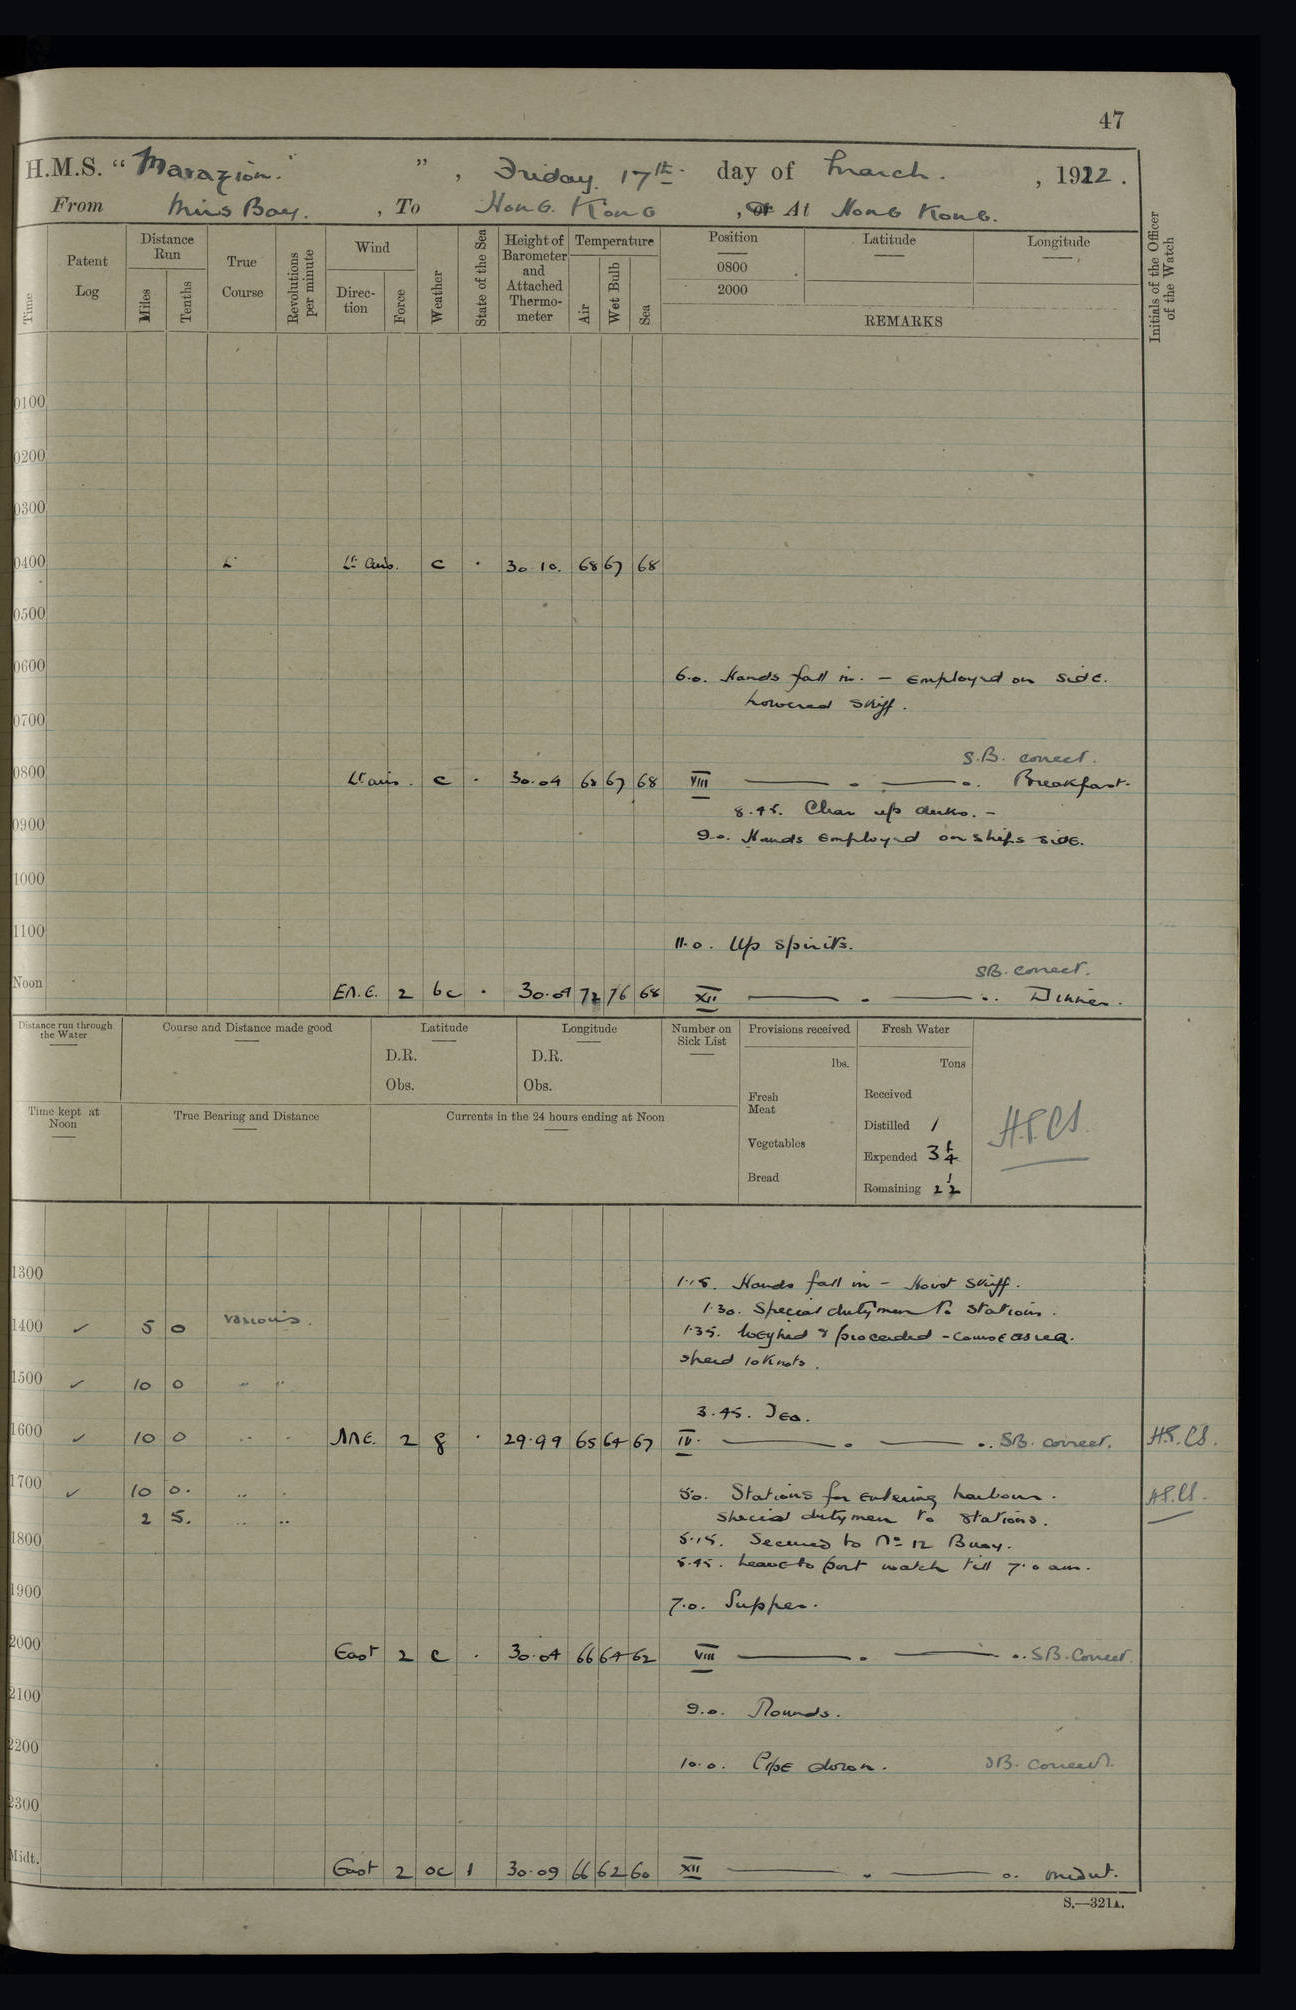 47
H.M.S. "Marazion." ", Friday 17th day of March. , 1922.
From Mirs Bay. , To Hong Kong , or At Hong Kong.
Time
Patent Log
Distance Run
Miles
Tenths
True Course
Revolutions per minute
Wind
Direction
Force
Weather
State of the Sea
Height of Barometer and Attached Thermometer
Temperature
Air
Wet Bulb
Sea
Position
0800
2000
Latitude
Longitude
REMARKS
Initials of the Officer of the Watch
0100
0200
0300
0400 Lt airs. c . 30.10. 68 67 68
0500
0600 6.0. Hands fall in. - Employed on side.
Lowered skiff.
0700
S.B. correct.
0800 Lt airs. c . 30.04 68 67 68 VIII Breakfast.
8.45. Clear up decks. -
0900 9.0. Hands employed on ships side.
1000
1100 11.0. Up spirits.
SB. correct.
Noon ENE. 2 bc . 30.07 72 76 68 XII Dinner.
Distance run through the Water
Course and Distance made good
Latitude
D.R.
Obs.
Longitude
D.R.
Obs.
Number on Sick List
Provisions received
lbs.
Fresh Meat
Vegetables
Bread
Fresh Water
Tons
Received
Distilled 1
Expended 3 1/4
Remaining 22
Time kept at Noon
True Bearing and Distance
Currents in the 24 hours ending at Noon
1300 1.15. Hands fall in - Hoist skiff.
1.30. Special dutymen to stations.
1400 ✓ 5 0 various. 1.35. Weighed & proceeded - course as req.
speed 10 knots.
1500 ✓ 10 0 " "
3.45. Tea.
1600 ✓ 10 0 " " NNE. 2 g . 29.99 65 64 67 IV. SB. correct.
1700 ✓ 10 0. " " 5.0. Stations for entering harbour.
2 5. " " Special dutymen to stations.
1800 5.15. Secured to No 12 Buoy.
5.45. Leave to port watch till 7.0 am.
1900 7.0. Supper.
2000 East 2 c . 30.04 66 64 62 VIII SB. Correct.
2100 9.0. Rounds.
2200 10.0. Pipe down. SB. correct.
2300
Midt. East 2 oc 1 30.09 66 62 60 XII
S.—321A.